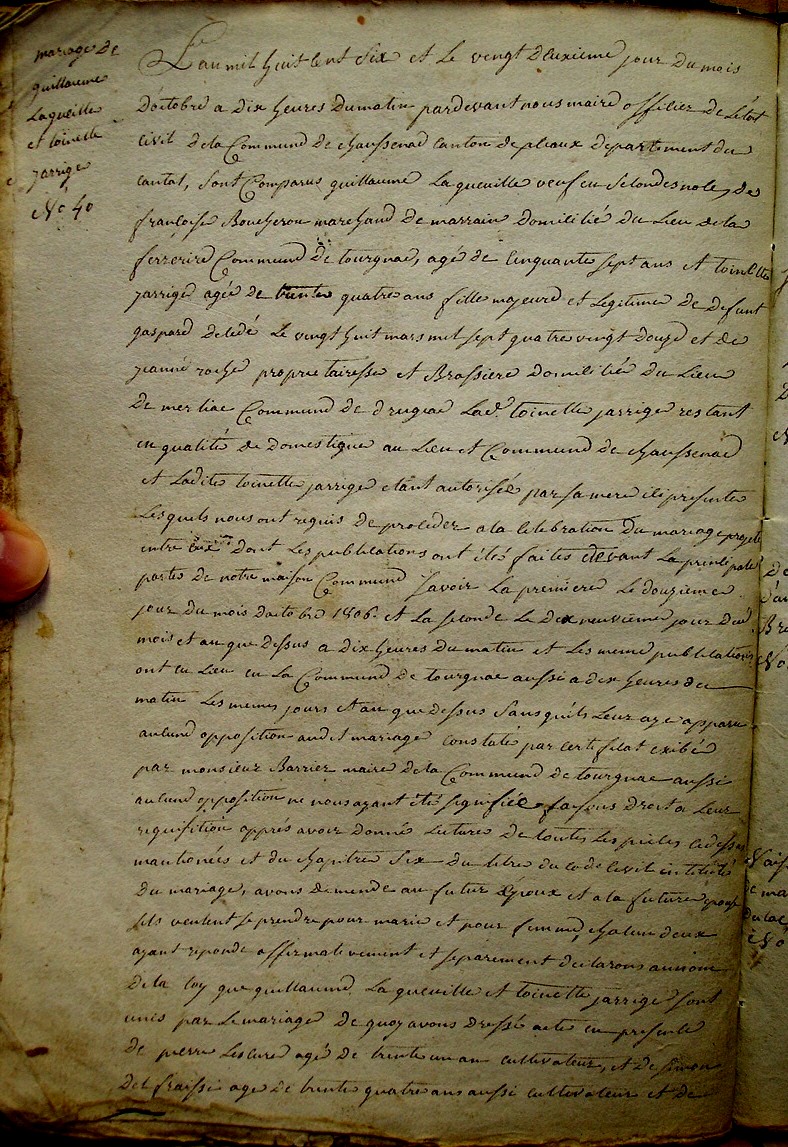 mariage de
guillaume
Laqueille
et toinette
jarrige
No 40
L'an mil huit cent Six et le vingt deuxieme jour du mois
D'octobre a dix heures du matin pardevant nous maire officier de l'état
civil de la Commune de chaussenac canton de pleaux departement du
cantal, sont Comparus guillaume Laqueuille veuf en secondes noles de
francoise Boucheron marchand de marrain domicilié du Lieu de la
ferrerire Commune de tourgnac, agé de Cinquante sept ans et toinette
jarrige agée de trente quatre ans fille majeure et Legitime de defunt
gaspard decedé Le vingt huit mars mil sept quatre vingt douze et de
jeanne roche proprietairesse et Brassiere domiciliée du Lieu
de merliac Commune de drugeac Lad. toinette jarrige restant
en qualité de domestique au Lieu et Commune de chaussenac
et Ladite toinette jarrige etant autorisée par sa mere ici presente
Lesquels nous ont requis de proceder a la celebration du mariage projeté
entre eux dont Les publications ont été faites devant La principale
portes de notre maison Commune Savoir La premiere Le douzieme
jour du mois d'octobre 1806 et La seconde Le dix neuvieme jour dud.
mois et an que dessus a dix heures du matin et Les meme publications
ont eu Lieu en La Commune de tourgnac aussi a dix heures du
matin Les memes jours et an que dessus sans qu'il Leur aye apparu
aucune opposition aud. mariage constaté par certificat exibée
par monsieur Barrier maire de la Commune de tourgnac aussi
aucune opposition ne nous ayant été signifiée faisons droit a Leur
requisition apprés avoir donné Lecture de toutes Les pieces ci dessus
mantionées et du chapitre Six du titre du code civil intitulé
du mariage, avons demende au futur Epoux et a la future epouse
s'ils veulent se prendre pour marie et pour femme, chacun deux
ayant reponde affirmativement et separement declarons au nom
de la loy que guillaume Laqueuille et toinette jarrige sont
unis par Le mariage de quoy avons dressé acte en presence
de pierre Lescure agé de trente un an cultivateur, et de simon
del fraissi age de trente quatre ans aussi cultivateur et de